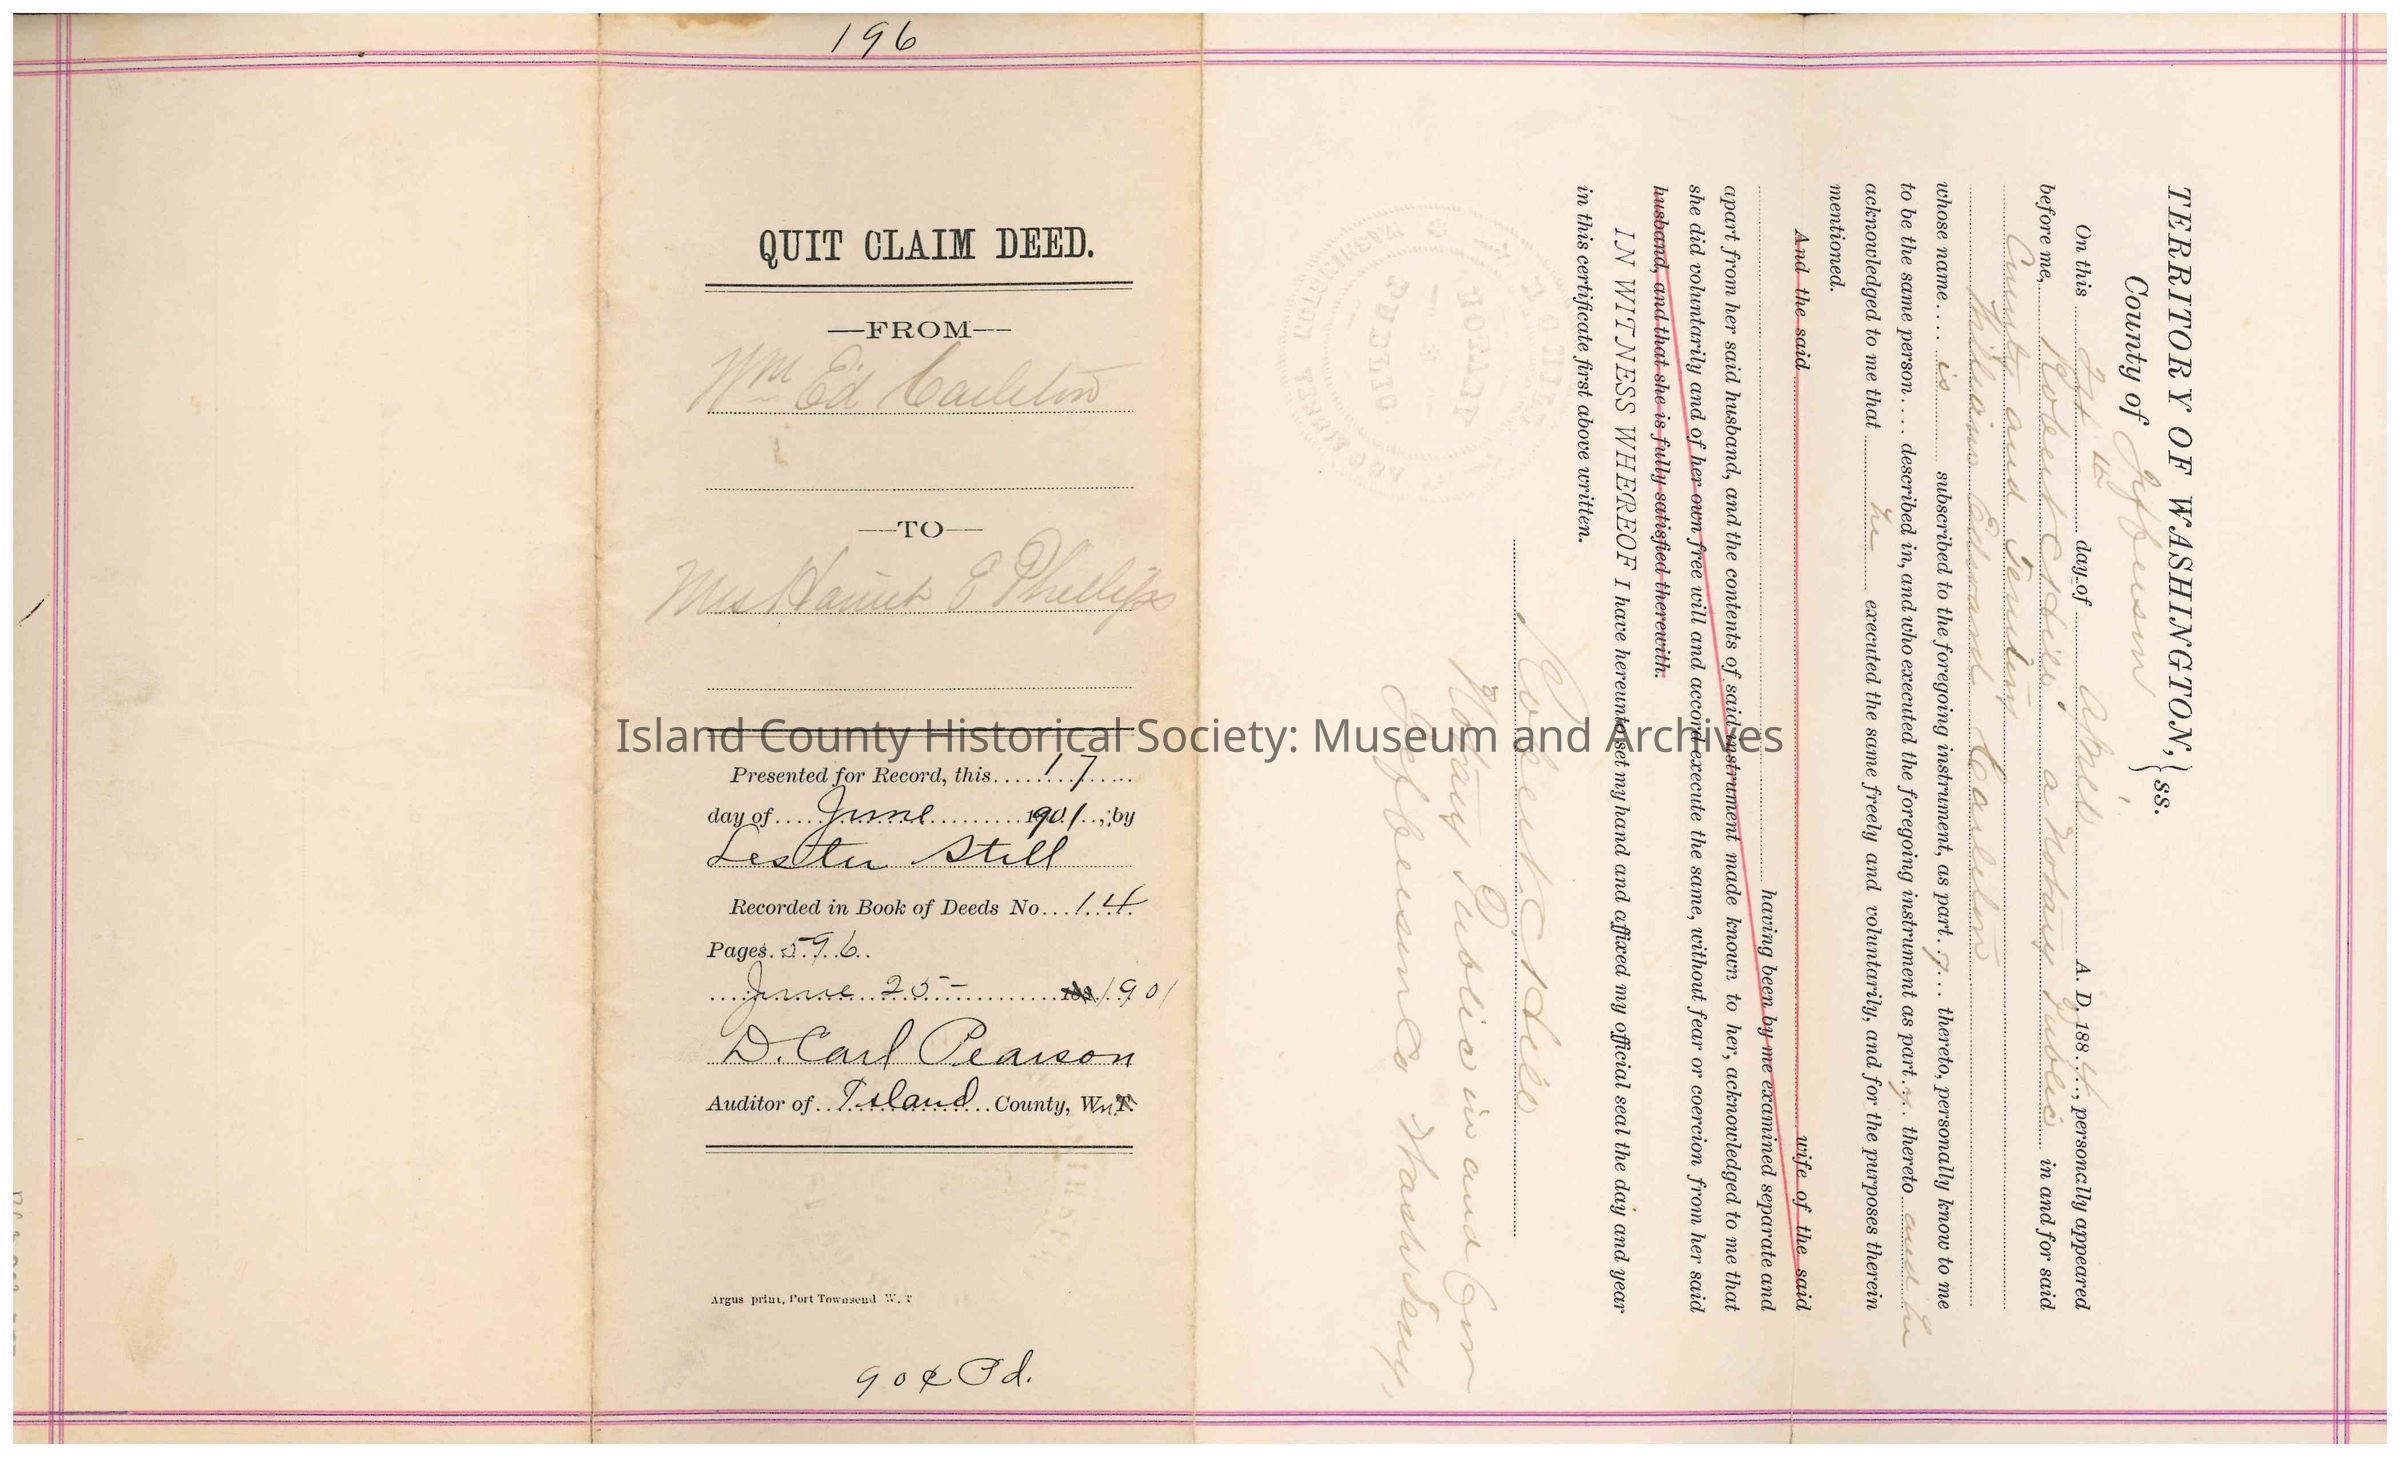 196
QUIT CLAIM DEED.
—FROM—
Wm Ed Carleton
—TO—
Mrs Harriet E Phillips
Presented for Record, this....17.....
day of.....June..........1901..,;by
Lester Still
Recorded in Book of Deeds No...14.
Pages.596..
....June 25............1901
D. Carl Pearson
Auditor of..Island..County, Wn
Argus print, Port Townsend W. T
90¢ Pd.
Island County Historical Society: Museum and Archives
TERRITORY OF WASHINGTON,} ss.
County of Jefferson
On this day of April A. D. 188 , personally appeared
before me, Robert C Hill, a Notary Public in and for said
County and Territory
William Edward Carleton
whose name.... is subscribed to the foregoing instrument, as part..y... thereto, personally know to me
to be the same person.... described in, and who executed the foregoing instrument as part y.. thereto and he
acknowledged to me that he executed the same freely and voluntarily, and for the purposes therein
mentioned.
And the said wife of the said
having been by me examined separate and
apart from her said husband, and the contents of said instrument made known to her, acknowledged to me that
she did voluntarily and of her own free will and accord execute the same, without fear or coercion from her said
husband, and that she is fully satisfied therewith.
IN WITNESS WHEREOF I have hereunto set my hand and affixed my official seal the day and year
in this certificate first above written.
Robert C Hill
Notary Public in and for
Jefferson Co Wash Terry,
NOTARY
PUBLIC